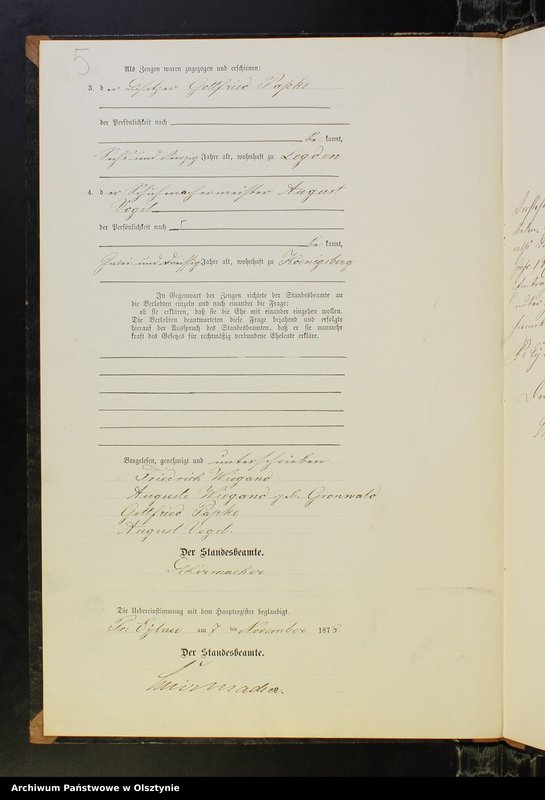 5
Als Zeugen waren zugezogen und erschienen:
3. der Besitzer Gottfried Papke
der Persönlichkeit nach
be kannt,
Sechs und vierzig Jahre alt, wohnhaft zu Legden
4. der Schuhmachermeister August
Vogel
der Persönlichkeit nach
be kannt,
Zwei und dreißig Jahre alt, wohnhaft zu Koenigsberg
In Gegenwart der Zeugen richtete der Standesbeamte an
die Verlobten einzeln und nach einander die Frage:
ob sie erklären, daß sie die Ehe mit einander eingehen wollen.
Die Verlobten beantworteten diese Frage bejahend und erfolgte
hierauf der Ausspruch des Standesbeamten, daß er sie nunmehr
kraft des Gesetzes für rechtmäßig verbundene Eheleute erkläre.
Vorgelesen, genehmigt und unterschrieben
Friedrich Wiegand
Auguste Wiegand geb. Gronwald
Gottfried Papke
August Vogel.
Der Standesbeamte.
Schirmacher
Die Uebereinstimmung mit dem Hauptregister beglaubigt.
Pr. Eylau am 7 ten November 1878
Der Standesbeamte.
Schirmacher.
Archiwum Państwowe w Olsztynie